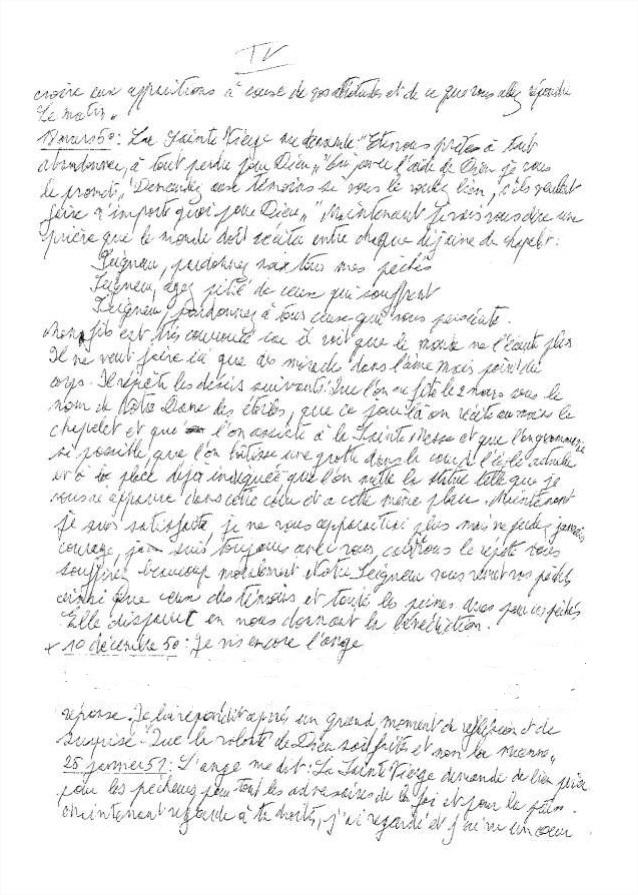 IV
croire aux apparitions à cause de vos attitudes et de ce que vous allez répondre
le matin.
18 mars 50 : La Sainte Vierge me demande "Etes vous prêtes à tout
abandonner, à tout perdre pour Dieu" "Oui avec l'aide de Dieu je vous
le promets" "Demandez aux témoins si vous le voulez bien, s'ils veulent
faire n'importe quoi pour Dieu" "Maintenant je vais vous dire une
prière que le monde doit réciter entre chaque dizaine du chapelet :
Seigneur, pardonnez moi tous mes péchés
Seigneur, ayez pitié de ceux qui souffrent
Seigneur, pardonnez à tous ceux que nous persécute.
Mon fils est très courroucé car il voit que le monde ne l'écoute plus
Il ne veut faire ici que des miracles dans l'âme mais point du
corps. Il répète les désirs suivants : Que l'on me fête le 2 mars sous le
nom de Notre Dame des étoiles, que ce jour là on récite au moins le
chapelet et que l'on assiste à la Sainte Messe et que l'on communie
si possible, que l'on bâtisse une grotte dans la cour de l'école actuelle
et à la place déjà indiquée que l'on mette la statue telle que je
vous ai apparue dans cette cour et à cette même place. Maintenant
je suis satisfaite je ne vous apparaîtrai plus mais ne perdez jamais
courage, je suis toujours avec vous, je le répète vous
souffrirez beaucoup moralement et Notre Seigneur vous remet vos péchés
ainsi que ceux des témoins et toute les peines dues pour ces péchés
Elle disparut en nous donnant la bénédiction.
+ 10 décembre 50 : Je vis encore l'ange
réponse. Je lui répondit après un grand moment de réflexion et de
surprise "Que la volonté de Dieu soit faites et non la mienne"
25 janvier 51 : L'ange me dit : La Sainte Vierge demande de bien prier
pour les pécheurs, pour tout les adversaires de la foi et pour la paix.
Maintenant regarde à ta droite, j'ai regardé et j'ai vu un cœur